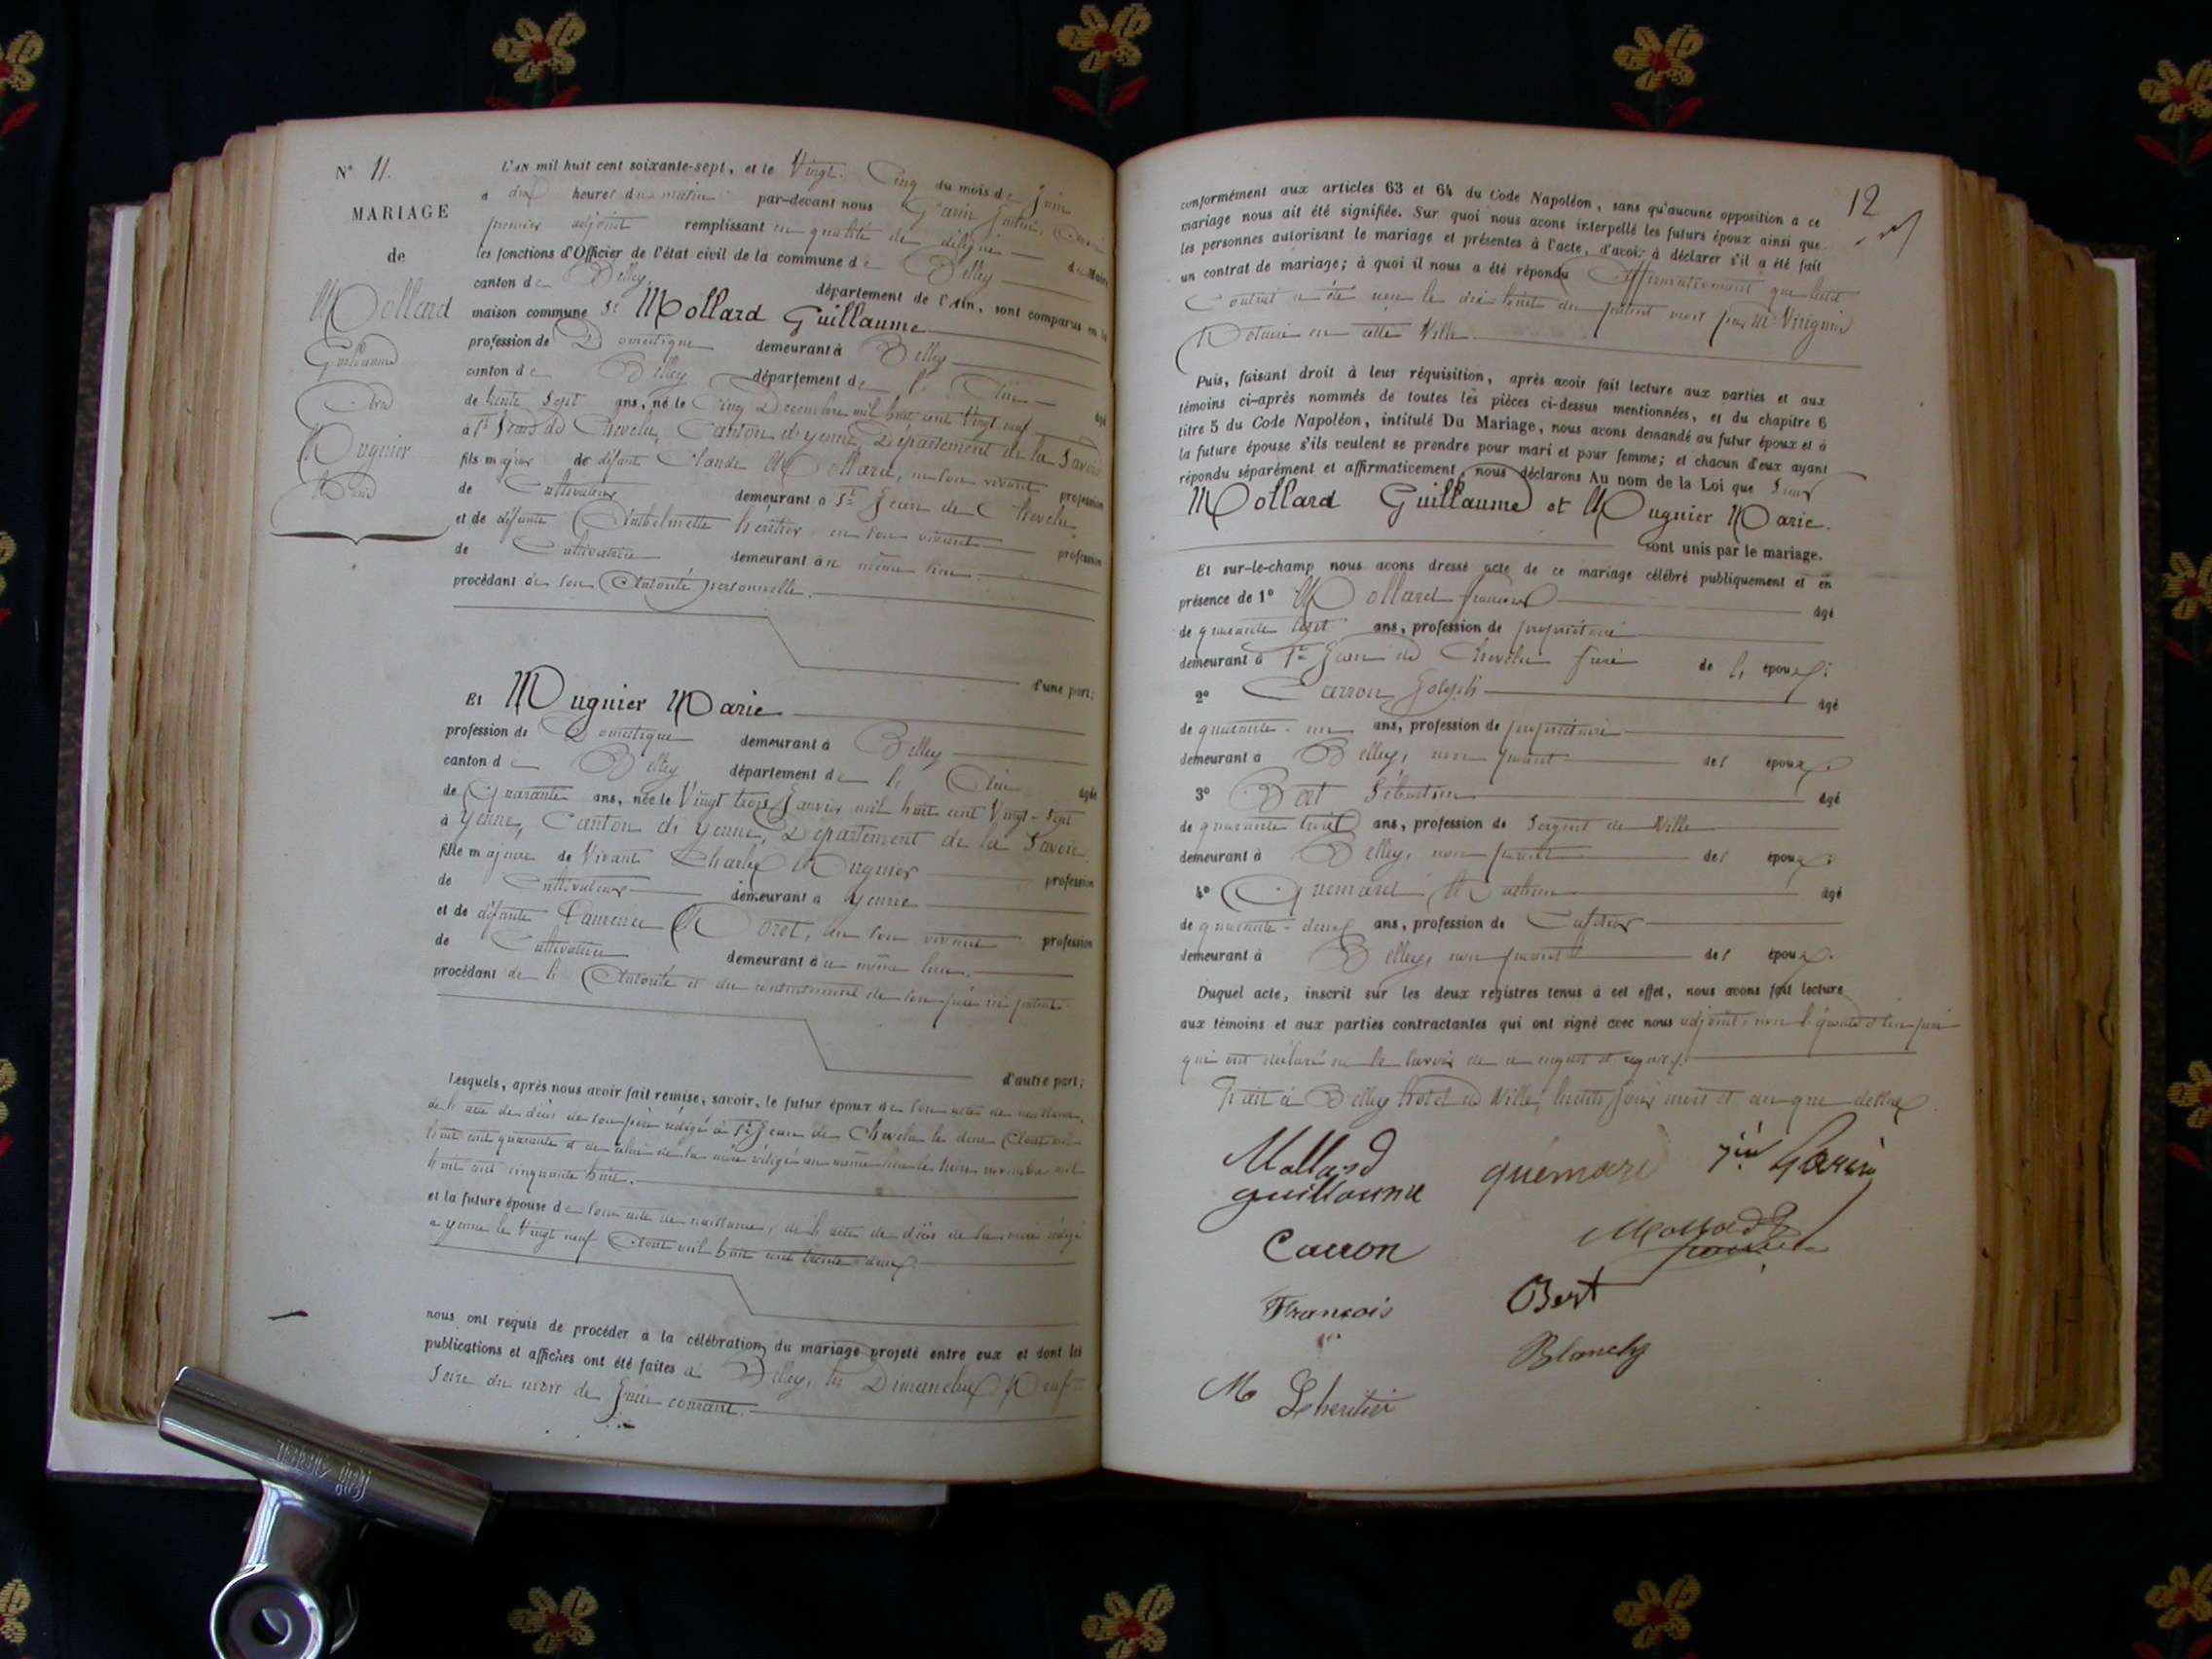 N° 11.
MARIAGE
de
Mollard
Guillaume
Avec
Mugnier
Marie
L'AN mil huit cent soixante-sept, et le Vingt Cinq du mois de Juin
à dix heures du matin par-devant nous Garin
premier adjoint remplissant en qualité de délégué du Maire
les fonctions d'Officier de l'état civil de la commune de Belley
canton de Belley, département de l'Ain, sont comparus en la
maison commune Sr Mollard Guillaume
profession de Domestique demeurant à Belley
canton de Belley département de l'Ain âgé
de trente sept ans, né le Cinq Décembre mil huit cent Vingt neuf
à St Jean de Chevelu, Canton d'Yenne, Département de la Savoie
fils majeur de défunt Claude Mollard, en son vivant profession
de Cultivateur demeurant à St Jean de Chevelu
et de défunte Anthelmette héritier, en son vivant profession
de Cultivatrice demeurant au même lieu.
procédant de son Autorité personnelle.
d'une part;
Et Mugnier Marie
profession de Domestique demeurant à Belley
canton de Belley département de l'Ain âgée
de Quarante ans, née le Vingt trois Janvier mil huit cent Vingt-Sept
à Yenne, Canton de Yenne, Département de la Savoie
fille majeure de Vivant Charles Mugnier profession
de Cultivateur demeurant à Yenne
et de défunte Laurence Moret, en son vivant profession
de Cultivatrice demeurant au même lieu.
procédant de l'Autorité et du consentement de son père ici présent
d'autre part;
Lesquels, après nous avoir fait remise, savoir, le futur époux de son acte de naissance,
de l'acte de décès de son père rédigé à St Jean de Chevelu le deux Août mil
huit cent quarante et de celui de sa mère rédigé au même lieu le treize novembre mil
huit cent cinquante huit.
et la future épouse de son acte de naissance, de l'acte de décès de sa mère rédigé
à Yenne le Vingt neuf Août mil huit cent trente deux.
nous ont requis de procéder à la célébration du mariage projeté entre eux et dont les
publications et affiches ont été faites à Belley, les Dimanches Neuf et
Seize du mois de Juin courant.
12
conformément aux articles 63 et 64 du Code Napoléon, sans qu'aucune opposition à ce
mariage nous ait été signifiée. Sur quoi nous avons interpellé les futurs époux ainsi que
les personnes autorisant le mariage et présentes à l'acte, d'avoir à déclarer s'il a été fait
un contrat de mariage; à quoi il nous a été répondu Affirmativement que ledit
Contrat a été reçu le dix huit du présent mois par Me Virignin
Notaire en cette Ville.
Puis, faisant droit à leur réquisition, après avoir fait lecture aux parties et aux
témoins ci-après nommés de toutes les pièces ci-dessus mentionnées, et du chapitre 6
titre 5 du Code Napoléon, intitulé Du Mariage, nous avons demandé au futur époux et à
la future épouse s'ils veulent se prendre pour mari et pour femme; et chacun d'eux ayant
répondu séparément et affirmativement, nous déclarons Au nom de la Loi que
Mollard Guillaume et Mugnier Marie.
sont unis par le mariage.
Et sur-le-champ nous avons dressé acte de ce mariage célébré publiquement et en
présence de 1° Mollard François âgé
de quarante sept ans, profession de propriétaire
demeurant à St Jean de Chevelu frère de l'époux;
2° Carron Joseph âgé
de quarante-un ans, profession de propriétaire
demeurant à Belley, non parent des époux.
3° Bert Sébastien âgé
de quarante trois ans, profession de Sergent de Ville
demeurant à Belley, non parent des époux;
4° Quemard Mathieu âgé
de quarante-deux ans, profession de Cafetier
demeurant à Belley, non parent des époux.
Duquel acte, inscrit sur les deux registres tenus à cet effet, nous avons fait lecture
aux témoins et aux parties contractantes qui ont signé avec nous adjoint, non l'épouse et son père
qui ont déclaré ne le savoir de ce enquis et requis.
Fait à Belley hôtel de Ville, lesdits jour mois et an que dessus
Mollard
guillaume
quémard
Garin
Carron
Mollard
François
Bert
Blanchy
M Lheritier